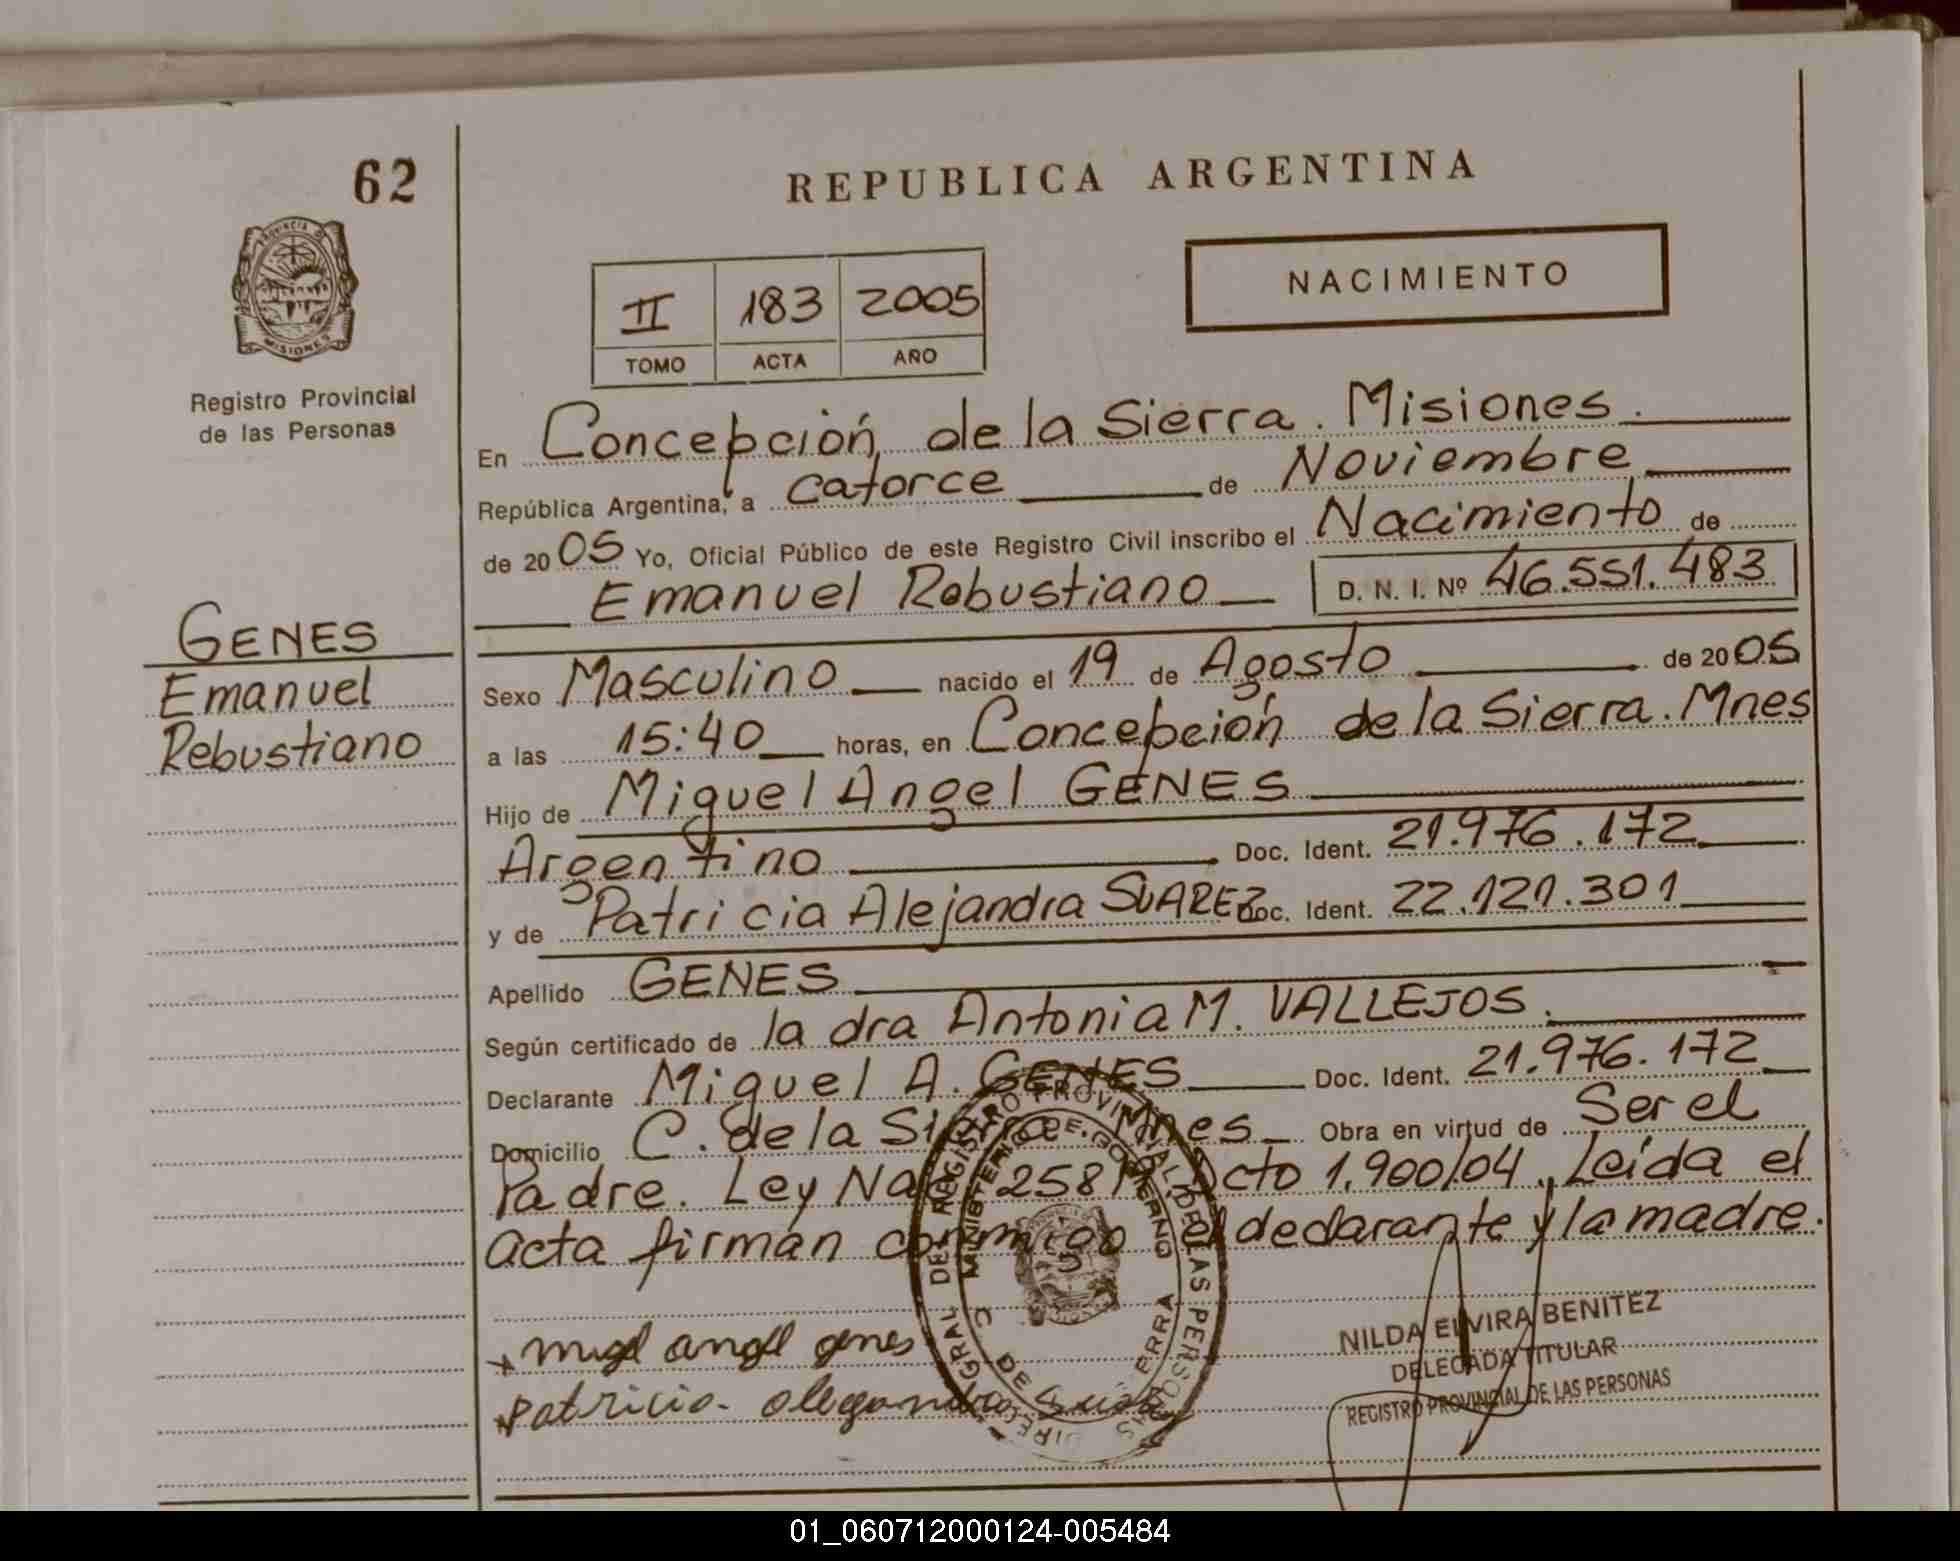 62
REPUBLICA ARGENTINA
PROVINCIA DE
MISIONES
Registro Provincial
de las Personas
NACIMIENTO
II 183 2005
TOMO ACTA AÑO
En Concepción de la Sierra. Misiones.
República Argentina, a catorce de Noviembre
de 2005 Yo, Oficial Público de este Registro Civil inscribo el Nacimiento de
Emanuel Robustiano D. N. I. Nº 46.551.483
GENES
Emanuel
Rebustiano
Sexo Masculino nacido el 19 de Agosto de 2005
a las 15:40 horas, en Concepción de la Sierra. Mnes
Hijo de Miguel Angel GENES
Argentino Doc. Ident. 21.976.172
y de Patricia Alejandra SUAREZ Doc. Ident. 22.121.301
Apellido GENES
Según certificado de la dra Antonia M. VALLEJOS.
Declarante Miguel A. GENES Doc. Ident. 21.976.172
Domicilio C. de la Sierra Mnes Obra en virtud de Ser el
Padre. Ley Nac 25819 Dcto 1.900/04. Leída el
acta firman conmigo el declarante y la madre.
migel angel genes
patricia
NILDA ELVIRA BENITEZ
DELEGADA TITULAR
REGISTRO PROVINCIAL DE LAS PERSONAS
GRAL DEL REGISTRO PROVINCIAL DE LAS PERSONAS
MINISTERIO DE GOBIERNO
01_060712000124-005484